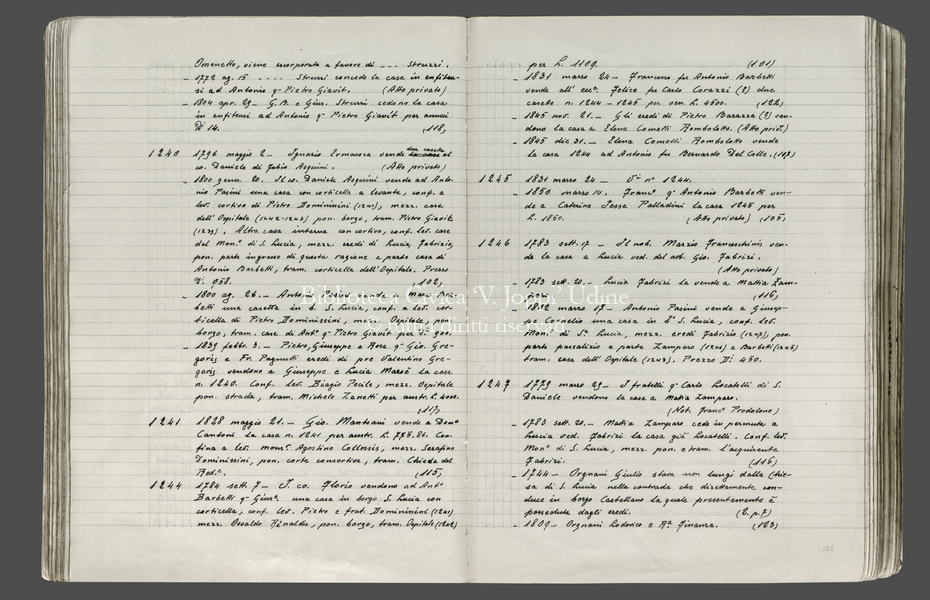 Omenetto, viene incorporata a favore di --- Strussi.
- 1772 ag. 15 ---- Strussi concede la casa in enfiteu-
si ad Antonio q- Pietro Giavit. (Atto privato)
- 1804 apr. 29- G.B. e Gius. Strussi cedono la casa
in enfiteusi ad Antonio q- Pietro Giavit per annui
D. 14. (118)
1240 1796 maggio 2- Ignazio Ermacora vende due casette al
co. Daniele di Fabio Asquini. (Atto privato)
- 1800 genn. 20. Il co. Daniele Asquini vende ad Anto-
nio Pasini una casa con corticella a levante, conf. a
lev. cortivo di Pietro Dominissini (1241), mezz. case
dell'Ospitale (1242-1243) pon. borgo, tram. Pietro Giavit
(1239). Altra casa interna con cortivo, conf. lev. case
del Mon.º di S. Lucia, mezz. eredi di Lucia Fabrizio,
pon. parte ingresso di questa ragione e parte casa di
Antonio Barbetti, tram. corticella dell'Ospitale. Prezzo
D. 958. (102)
- 1800 ag. 26- Antonio Pasini vende a
betti una casetta in b. S. Lucia, conf. a lev. cor-
ticella di Pietro Dominissini, mezz. Ospitale, pon.
borgo, tram. case di Ant.º q- Pietro Giavit per
- 1839 febbr. 3.- Pietro, Giuseppe e Rosa q- Gio. Gre-
goris e Fr. Pagnutti eredi di pre Valentino Gre-
goris vendono a Giuseppe e Lucia Marsè la casa
n. 1240. Conf. lev. Biagio Pecile, mezz. Ospitale
pon. strada, tram. Michele Zanetti per austr. L. 4000.
(117)
1241 1828 maggio 21.- Gio. Mantoani vende a Dom.º
Cantoni la casa n. 1241 per austr. L. 775.86. Con-
fina a lev. mons.r Agostino Collossis, mezz. Serafino
Dominissini, pon. corte consortiva, tram. Chiesa del
Red.e. (115)
1244 1784 sett. 7- I co. Florio vendono ad Ant.º
Barbetti q- Gius.e una casa in borgo S. Lucia con
corticella, conf. lev. Pietro e frat. Dominissini (1241)
mezz. Osvaldo Rinaldi, pon. borgo, tram. Ospitale (1242)
per L. 1109. (101)
- 1831 marzo 24- Francesco fu Antonio Barbetti
vende all'ecc.º Felice fu Carlo Corazzi (?) due
casette n. 1244-1245 per ven. L. 4500. (122)
- 1845 nov. 21.- Gli eredi di Pietro Barazza (?) ven-
dono la casa a Elena Comelli Bombolotto. (Atto priv.)
- 1845 dic. 31.- Elena Comelli Bombolotto vende
la casa 1244 ad Antonio fu Bernardo Del Colle. (107)
1245 1831 marzo 24- V. n.º 1244.
- 1850 marzo 14. Franc.º q- Antonio Barbetti ven-
de a Caterina Jesse Palladini la casa 1245 per
L. 1850. (Atto privato) (105)
1246 1783 sett. 17- Il nob. Marzio Franceschinis ven-
de la casa a Lucia ved. del nob. Gio. Fabrizi.
(Atto privato)
1783 sett. 20.- Lucia Fabrizi la vende a Mattia Zam-
paro. (116)
- 1802 marzo 17- Antonio Pasini vende a Giusep-
pe Cornelio una casa in b.º S. Lucia, conf. lev.
Mon.º di S.a Lucia, mezz. eredi Fabrizio (1247), pon.
parte passalizio e parte Zamparo (1246) e Barbetti (1245)
tram. case dell'Ospitale (1243). Prezzo D. 450.
1247 1779 marzo 29- I fratelli q- Carlo Locatelli di S.
Daniele vendono la casa a Mattia Zamparo.
(Not. Franc.º Prodolone)
- 1783 sett. 20.- Mattia Zamparo cede in permuta a
Lucia ved. Fabrizi la casa già Locatelli. Conf. lev.
Mon.º di S. Lucia, mezz. pon. e tram. l'acquirente
Fabrizi. (116)
- 1744- Orgnani Giulio stava non lungi dalla Chie-
sa di S. Lucia nella contrada che direttamente con-
duce in borgo Castellano la quale presentemente è
posseduta dagli eredi. (Z. p. 7)
- 1809- Orgnani Lodovico e R.a Finanza. (123)
122
Biblioteca Civica 'V. Joppi' Udine
© tutti i diritti riservati